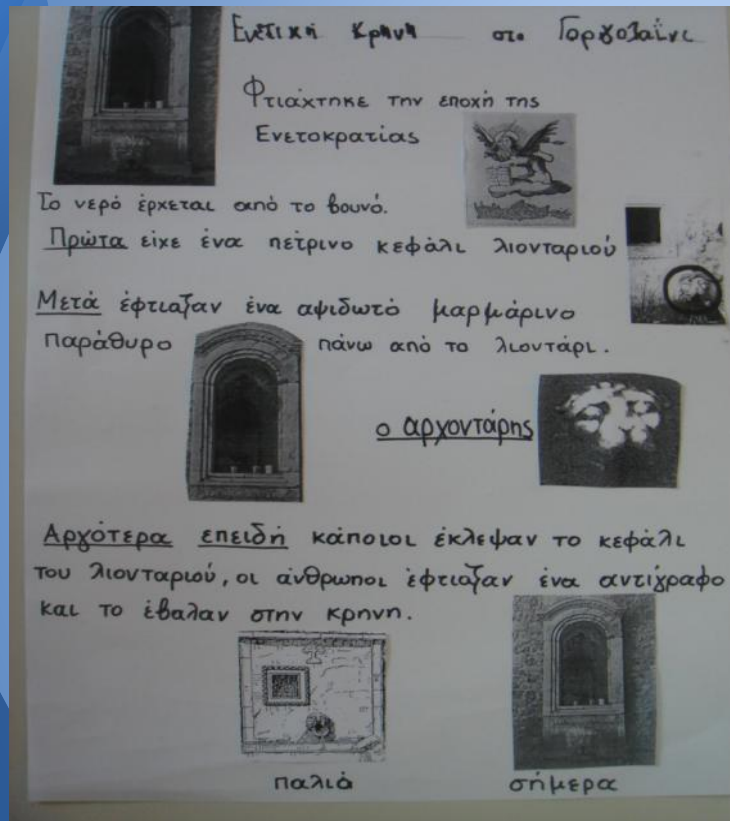 Ενετική Κρηνη στο Γοργολαΐνι
Φτιάχτηκε την εποχή της
Ενετοκρατίας
Το νερό έρχεται από το βουνό.
Πρώτα είχε ένα πέτρινο κεφάλι λιονταριού
Μετά έφτιαξαν ένα αψιδωτό μαρμάρινο
παράθυρο πάνω από το λιοντάρι.
ο αρχοντάρης
Αργότερα επειδή κάποιοι έκλεψαν το κεφάλι
του λιονταριού, οι άνθρωποι έφτιαξαν ένα αντίγραφο
και το έβαλαν στην κρηνη.
παλιά σήμερα